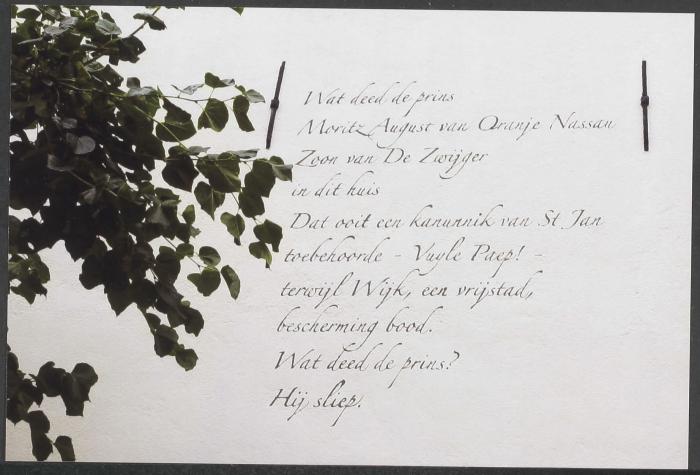 Wat deed de prins
Moritz August van Oranje Nassau
Zoon van De Zwijger
in dit huis
Dat ooit een kanunnik van St Jan
toebehoorde - Vuyle Paep! -
terwijl Wijk, een vrijstad,
bescherming bood.
Wat deed de prins?
Hij sliep.